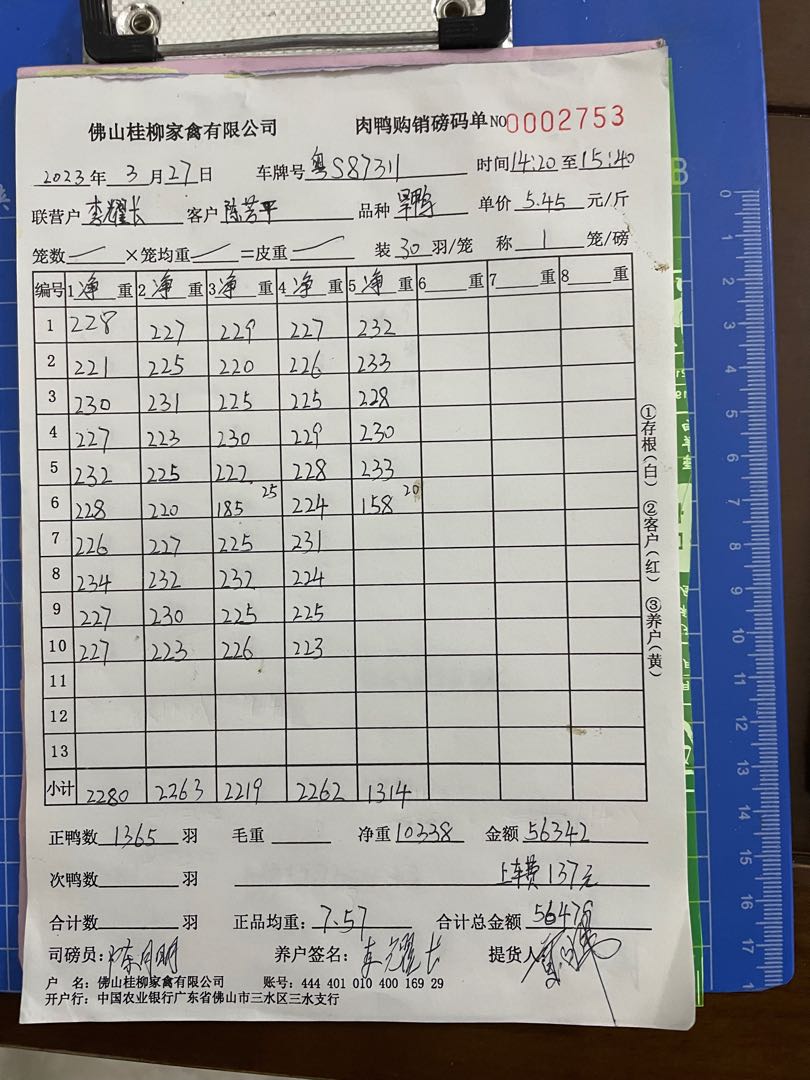 佛山桂柳家禽有限公司 肉鸭购销磅码单 NO0002753
2023年 3月27日 车牌号 粤S87311 时间14:20至15:40
联营户 李耀长 客户 陈芳平 品种 旱鸭 单价 5.45 元/斤
笼数 ×笼均重 =皮重 装 30 羽/笼 称 1 笼/磅
编号 1净重 2净重 3净重 4净重 5净重 6重 7重 8重
1 228 227 229 227 232
2 221 225 220 226 233
3 230 231 225 225 228
4 227 223 230 229 230
5 232 225 222 228 233
6 228 220 185 25 224 158 20
7 226 227 225 231
8 234 232 232 224
9 227 230 225 225
10 227 223 226 223
11
12
13
小计 2280 2263 2219 2262 1314
①存根(白) ②客户(红) ③养户(黄)
正鸭数 1365 羽 毛重 净重 10338 金额 56342
次鸭数 羽 上车费137元
合计数 羽 正品均重: 7.57 合计总金额 56479
司磅员: 养户签名: 李耀长 提货人:
户 名: 佛山桂柳家禽有限公司 账号: 444 401 010 400 169 29
开户行: 中国农业银行广东省佛山市三水区三水支行
B
0
1
2
3
4
5
6
7
8
9
10
11
12
13
14
15
16
17